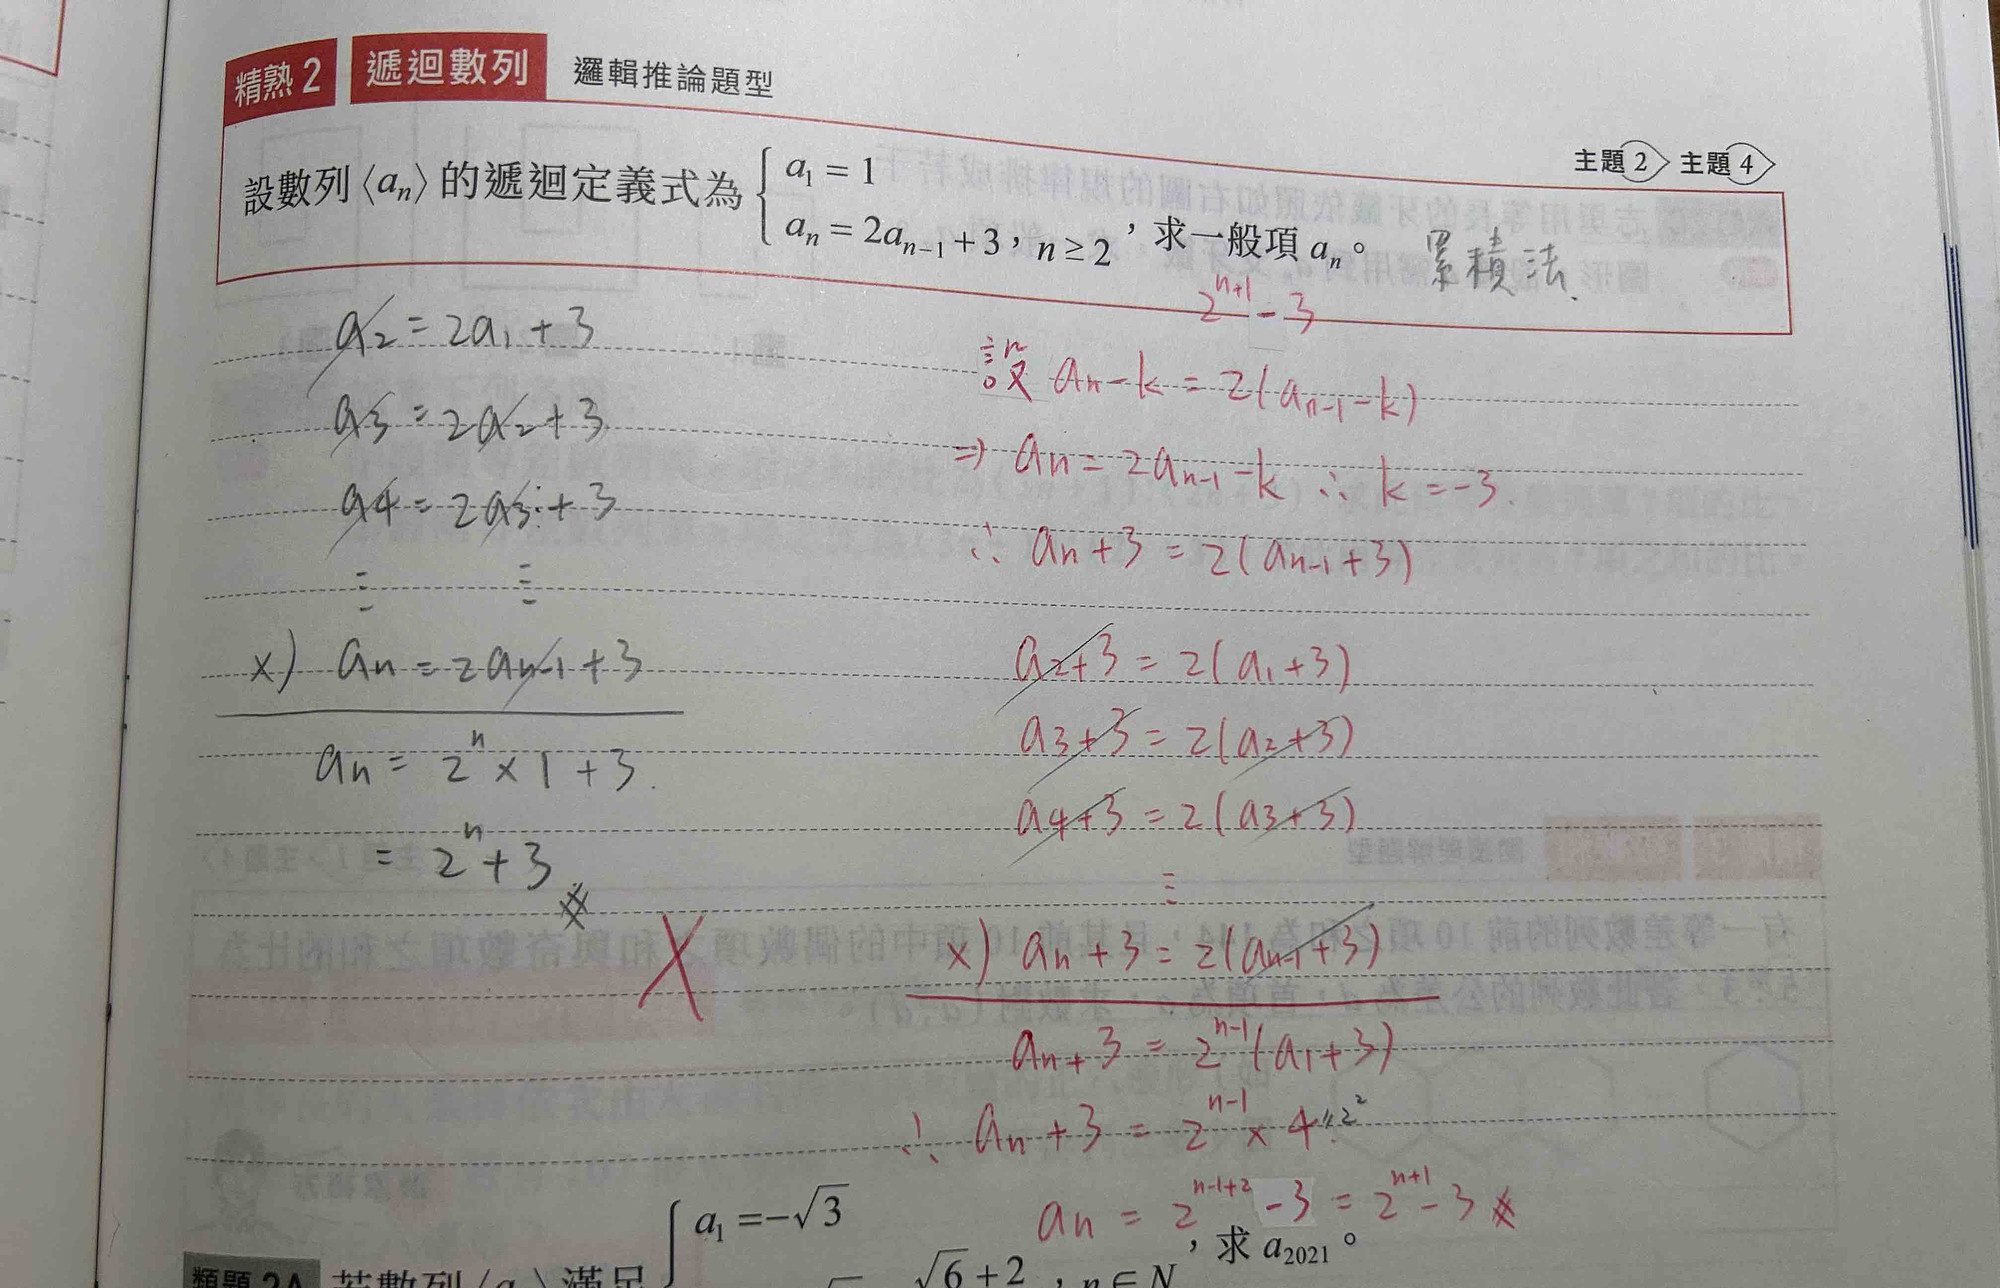 精熟 2 遞迴數列 邏輯推論題型
主題 2 主題 4
設數列〈aₙ〉的遞迴定義式為 { a₁ = 1
aₙ = 2aₙ₋₁ + 3，n ≥ 2 ，求一般項 aₙ。 累積法
2ⁿ⁺¹ - 3
a₂ = 2a₁ + 3
a₃ = 2a₂ + 3
a₄ = 2a₃ + 3
⋮ ⋮
×) aₙ = 2aₙ₋₁ + 3
aₙ = 2ⁿ × 1 + 3.
= 2ⁿ + 3
X
設 aₙ - k = 2(aₙ₋₁ - k)
⇒ aₙ = 2aₙ₋₁ - k ∴ k = -3.
∴ aₙ + 3 = 2(aₙ₋₁ + 3)
a₂ + 3 = 2(a₁ + 3)
a₃ + 3 = 2(a₂ + 3)
a₄ + 3 = 2(a₃ + 3)
⋮
×) aₙ + 3 = 2(aₙ₋₁ + 3)
aₙ + 3 = 2ⁿ⁻¹(a₁ + 3)
∴ aₙ + 3 = 2ⁿ⁻¹ × 4 2²
aₙ = 2ⁿ⁻¹⁺² - 3 = 2ⁿ⁺¹ - 3
類題 2A 若數列〈a 〉滿足 { a₁ = -√3
√6 + 2 , n ∈ N ，求 a₂₀₂₁。